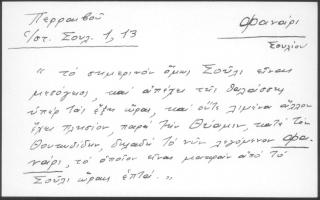 Περραιβοῦ
Φανάρι
Ἱστ. Σουλ. 1, 13
Σουλίου
"τό σημερινόν ὅμως Σοῦλι εἶναι
μεσόγειον, καί ἀπέχει τῆς θαλάσσης
ὑπέρ τάς ἕξ ὥρας, καί οὔτε λιμένα ἄλλον
ἔχει πλησίον, παρά τήν Θύαμιν, κατά τόν
Θουκυδίδην, δηλαδή τό νῦν λεγόμενον Φα-
νάρι, τό ὁποῖον εἶναι μακράν ἀπό τό
Σοῦλι ὥρας ἑπτά."